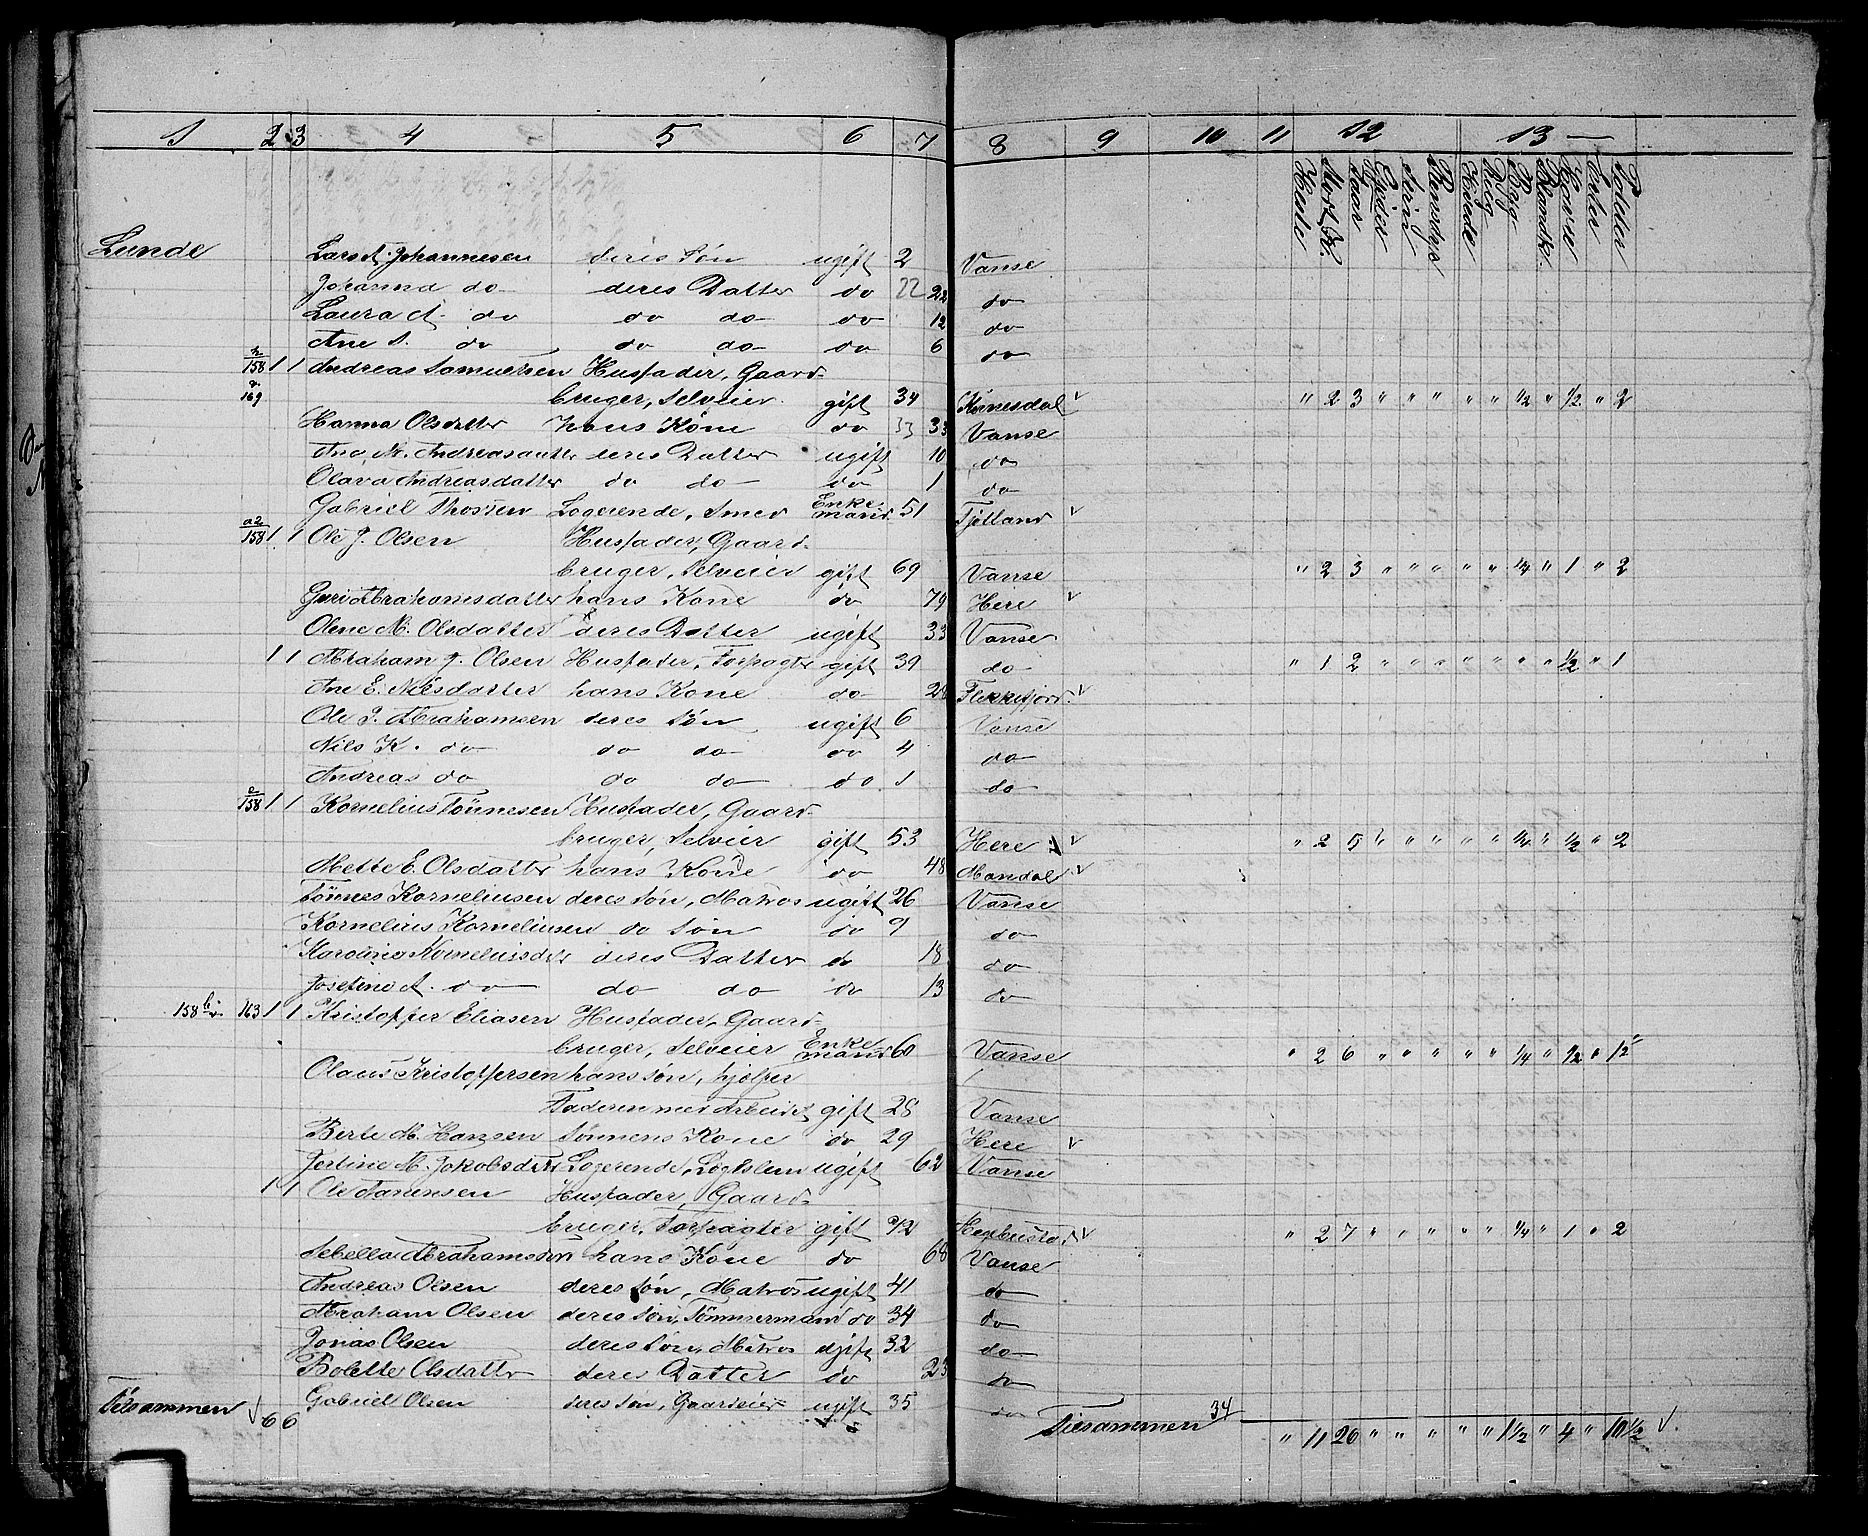 1 2 3 4 5 6 7 8 9 10 11 12 13
Heste Store K. Faar Geder Sviin Rensdyr Hvede Rug Byg Blandk. Havre Erter Poteter
Lunde Lars A. Johannesen deres Søn ugift 2 Vanse
Johanna do deres Datter do 22 22 do
Laura A. do do do do 12 do
Ane S. do do do do 6 do
158 1 1 Andreas Samuelsen Husfader, Gaard-
169 bruger, Selveier gift 34 Kvinesdal v " 2 3 " " " " " 1/2 " 1/2 " 2
Hanna Olsdatter hans Kone do 33 33 Vanse
Ane M. Andreasdatter deres Datter ugift 10 do
Olava Andreasdatter do do do 1 do
Gabriel Thorsen Logerende, Smed Enkemand 51 Fjotland v
a2/158 1 1 Ole J. Olsen Husfader, Gaard-
bruger, Selveier gift 69 Vanse " 2 3 " " " " " 1/4 " 1 " 2
Guri Abrahamsdatter hans Kone do 79 Here v
Olene M. Olsdatter deres Datter ugift 33 Vanse
1 1 Abraham J. Olsen Husfader, Forpagter gift 39 do " 1 2 " " " " " " " 1/2 " 1
Ane E. Nilsdatter hans Kone do 28 Flekkefjord v
Ole P. Abrahamsen deres Søn ugift 6 Vanse
Nils K. do do do do 4 do
Andreas do do do do 1 do
158 1 1 Kornelius Tønnesen Husfader, Gaard-
bruger, Selveier gift 53 Here v " 2 5 " " " " " 1/4 " 1/2 " 2
Mette E. Olsdatter hans Kone do 48 Mandal v
Tønnes Korneliusen deres Søn, Matros ugift 26 Vanse
Kornelius Korneliusen do Søn do 9 do
Karoline Korneliusdtr deres Datter do 18 do
Josefine A. do do do do 13 do
158 b 163 1 1 Kristoffer Eliasen Husfader, Gaard-
bruger, Selveier Enkemand 60 Vanse " 2 6 " " " " " 1/4 " 1/2 "
Olaus Kristoffersen hans Søn, hjelper
Faderen med Arbeidet gift 28 Vanse
Berte M. Hansen Sønnens Kone do 29 Here v
M. Jakobsdtr Logerende, Lægdslem ugift 62 Vanse
1 1 Ole Husfader, Gaard-
bruger, Forpagter gift 72 Hegebustad v " 2 7 " " " " " 1/4 " 1 " 2
Sebella Abrahamsdtr hans Kone do 68 Vanse
Andreas Olsen deres Søn, Matros ugift 41 do
Abraham Olsen deres Søn, Tømmermand do 34 do
Jonas Olsen deres Søn, Matros ugift 32 do
Bolette Olsdatter deres Datter do 23 do
Gabriel Olsen deres Søn, Gaardeier ugift 35 do
Tilsammen v 6 6 Tilsammen 34 " 11 26 " " " " " 1 1/2 " 4 " 10 1/2 v.